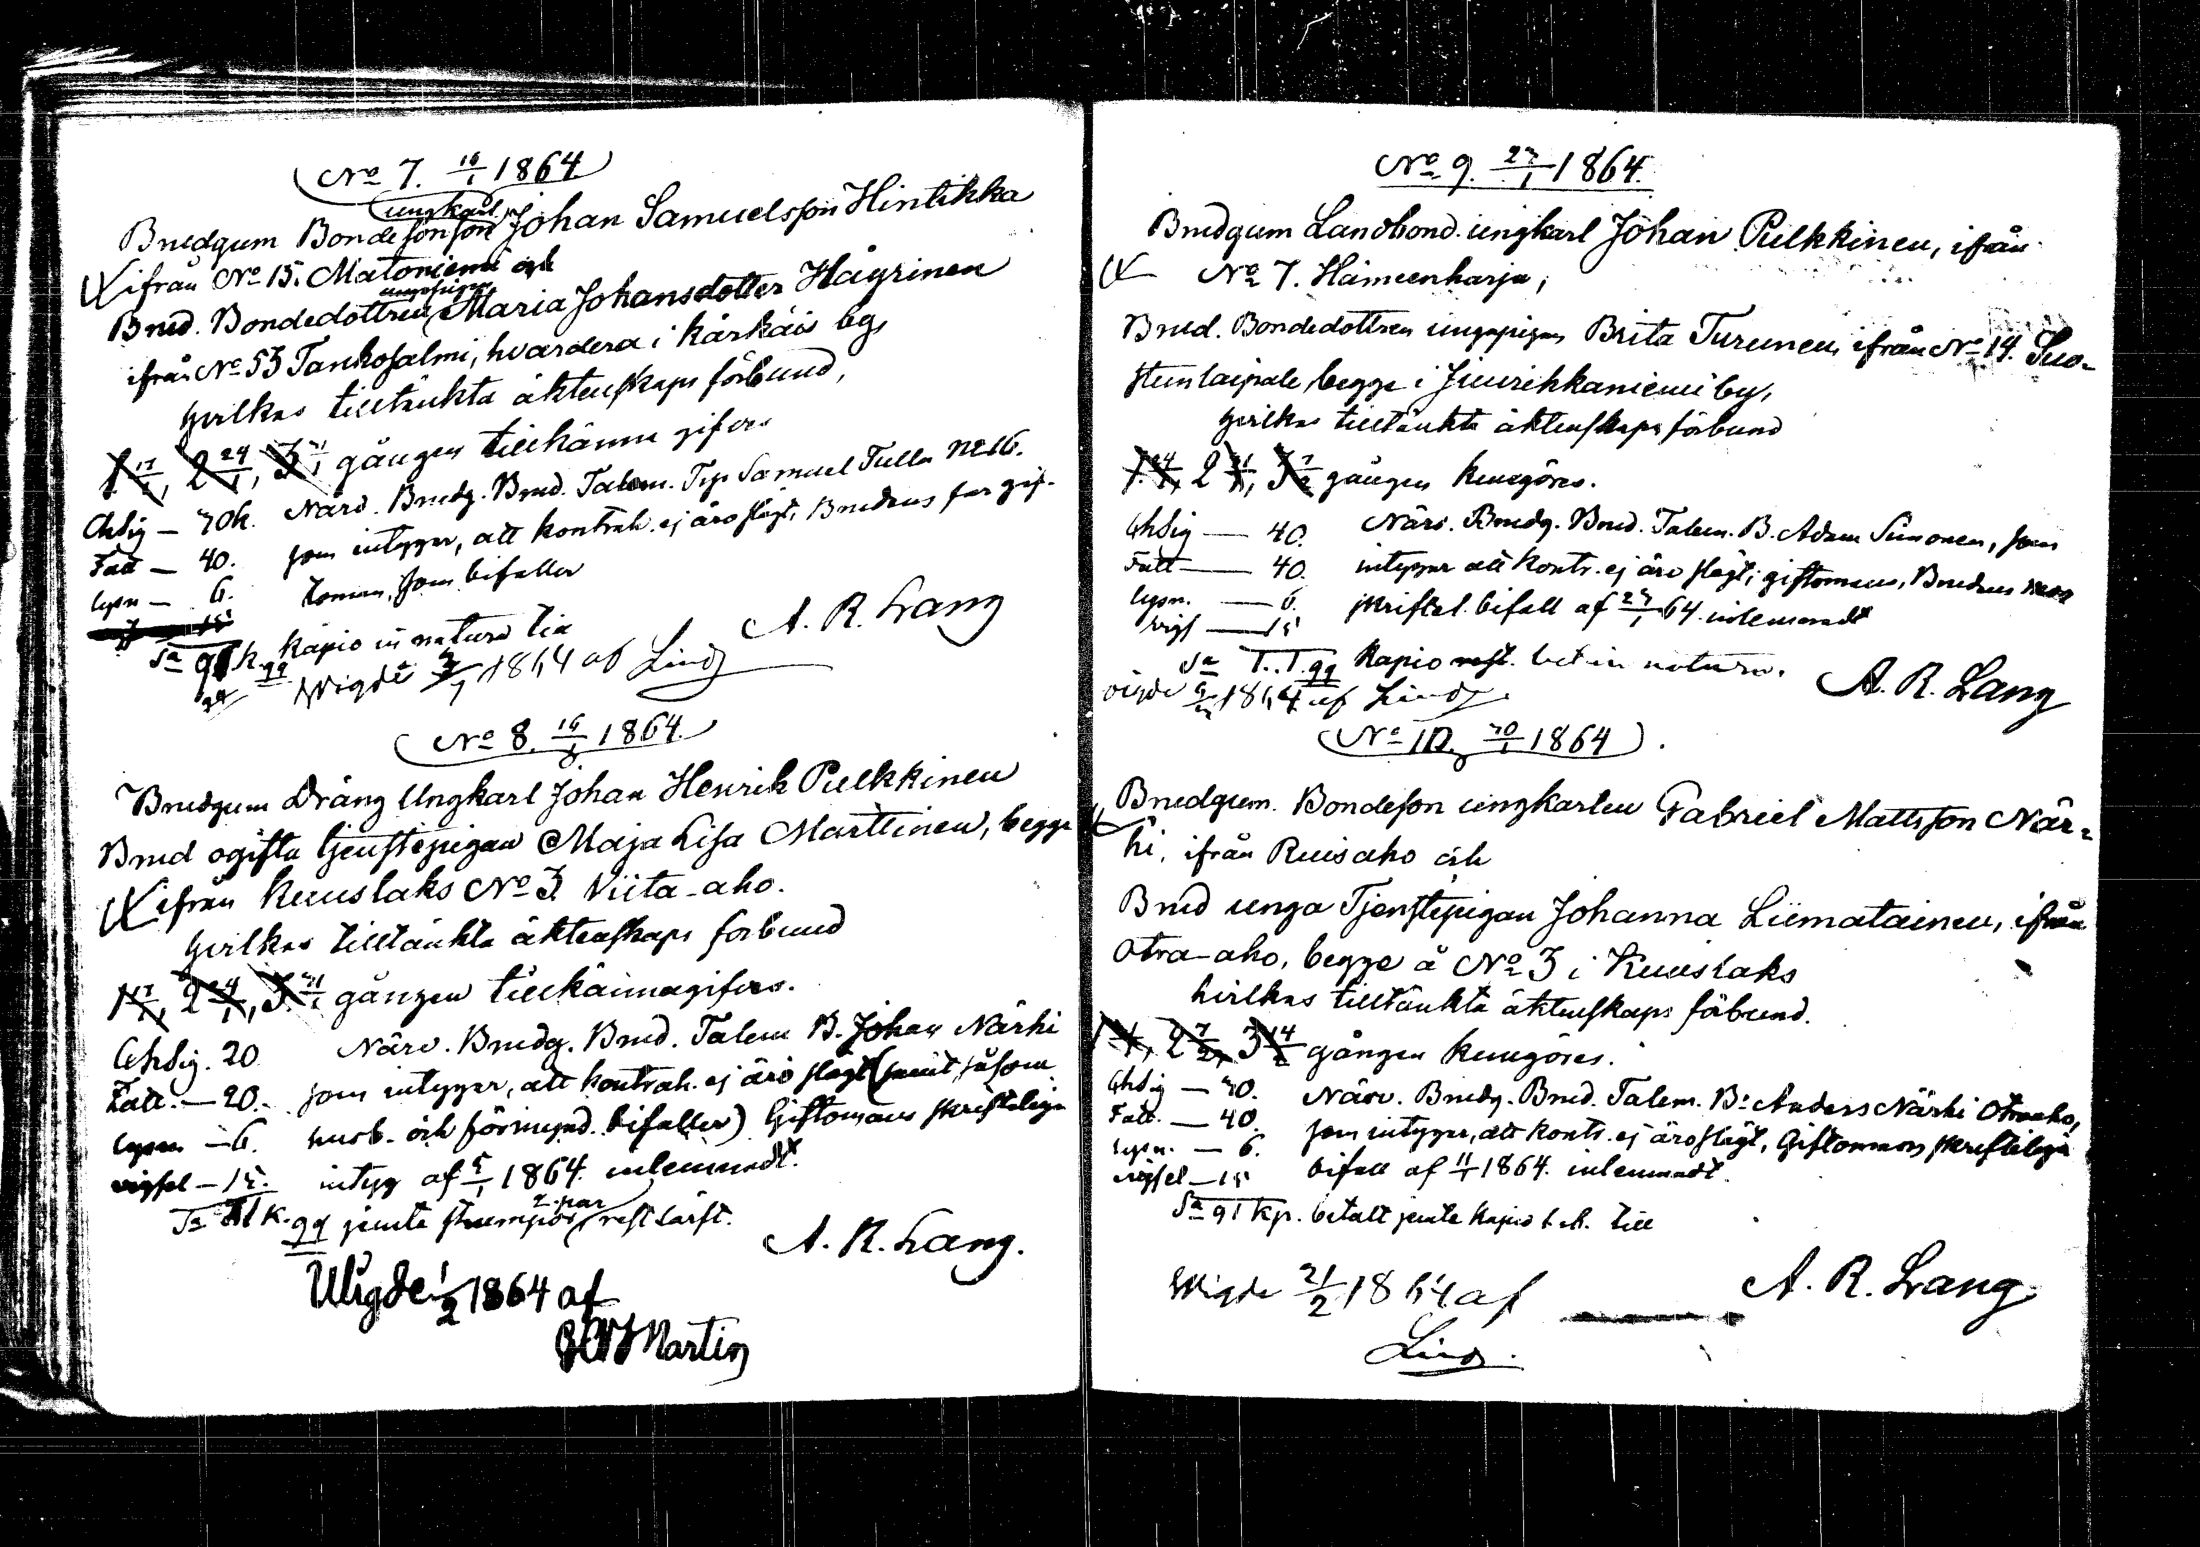 No 7. 16/1 1864
ungkarl
Brudgum Bondesonson Johan Samuelsson Hintikka
ifrån No 15. Matoniemi och
ungapigan
Brud. Bondedottren Maria Johansdotter Häyrinen
ifrån No 53 Tankosalmi, hvardera i Kärkäis by
hvilkas tilltänkta äktenskaps förbund,
1 17/1, 2 24/1, 3 31/1 gången tillkänna gifves
Närv. Brudg. Brud. Talem. Trp Samuel Tulla No 16.
Chsig — 40k.
som intygar, att kontrah. ej äro slägt, Brudens far gif-
Fatt — 40.
toman, som bifaller
lysn — 6.
Sa k. kapio in natura
99
A. R. Lang
Wigde 1864 af Lind
No 8. 16/1 1864.
Brudgum Dräng Ungkarl Johan Henrik Pulkkinen
Brud ogifta tjenstepigan Maja Lisa Marttinen, begge
ifrån Kuuslaks No 3 Viita-aho.
hvilkas tilltänkta äktenskaps förbund
1 17/1, 2 24/1, 3 31/1 gången tillkännagifves.
Närv. Brudg. Brud. Talem B. Johan Närhi
Chsig. 20
som intygar, att kontrah. ej äro slägt (samt såsom
Fatt. — 20.
husb. och förmynd. bifaller) Giftomans skriftliga
lysn — 6.
intyg af 5/1 1864. inlemnadt.
vigsel — 15.
2 par
Sa k. 99 jemte strumpor, rest särst.
A. R. Lang.
Wigde 1/2 1864 af
Martin
No 9. 23/1 1864.
Brudgum Landbond. ungkarl Johan Pulkkinen, ifrån
No 7. Hämeenharja,
Brud. Bondedottren ungapigan Brita Turunen ifrån No 14. Suo-
stunlaipale, begge i Juurikkaniemi by,
hvilkas tilltänkta äktenskaps förbund
1. 24/1, 2 31/1, 3 7/2 gången kungöres.
Närv. Brudg. Brud. Talem. B. Adam Simonen, som
Chsig — 40.
intygar att kontr. ej äro slägt; giftomans, Brudens
Fatt — 40.
skriftel. bifall af 23/1 64. inlemnadt
lysn. — 6.
vigs — 15
Sa 1.1. 99 Kapio rest. bet in natura.
A. R. Lang
vigde 1864 af Lind
No 10. 30/1 1864.
Brudgum. Bondeson ungkarlen Gabriel Mattsson När-
hi, ifrån Ruisaho och
Brud unga Tjenstepigan Johanna Liimatainen, ifrån
Otra-aho, begge å No 3 i Kuuslaks
hvilkas tilltänkta äktenskaps förbund.
2 7/2, 3 14/2 gången kungöres.
Närv. Brudg. Brud. Talem. B: Anders Närhi Otraaho,
Chsig — 30.
som intygar, att kontr. ej äro slägt, Giftomans skriftliga
Fatt. — 40.
bifall af 11/1 1864. inlemnadt.
lysn. — 6.
vigsel — 15
Sa 91 kp. betalt jemte kapio
A. R. Lang
Wigde 21/2 1864 af
Lind.